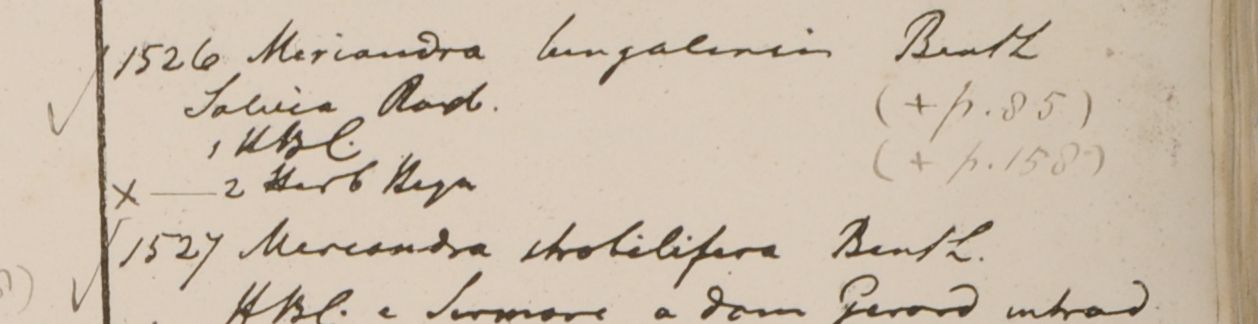 1526 Meriandra bengalensis Benth
(+ p. 85)
Salvia Roxb.
1 HBC.
(+ p. 158)
x — 2 Herb Heyn
1527 Meriandra strobilifera Benth.
HBC. e Sirmore a dom Gerard introd